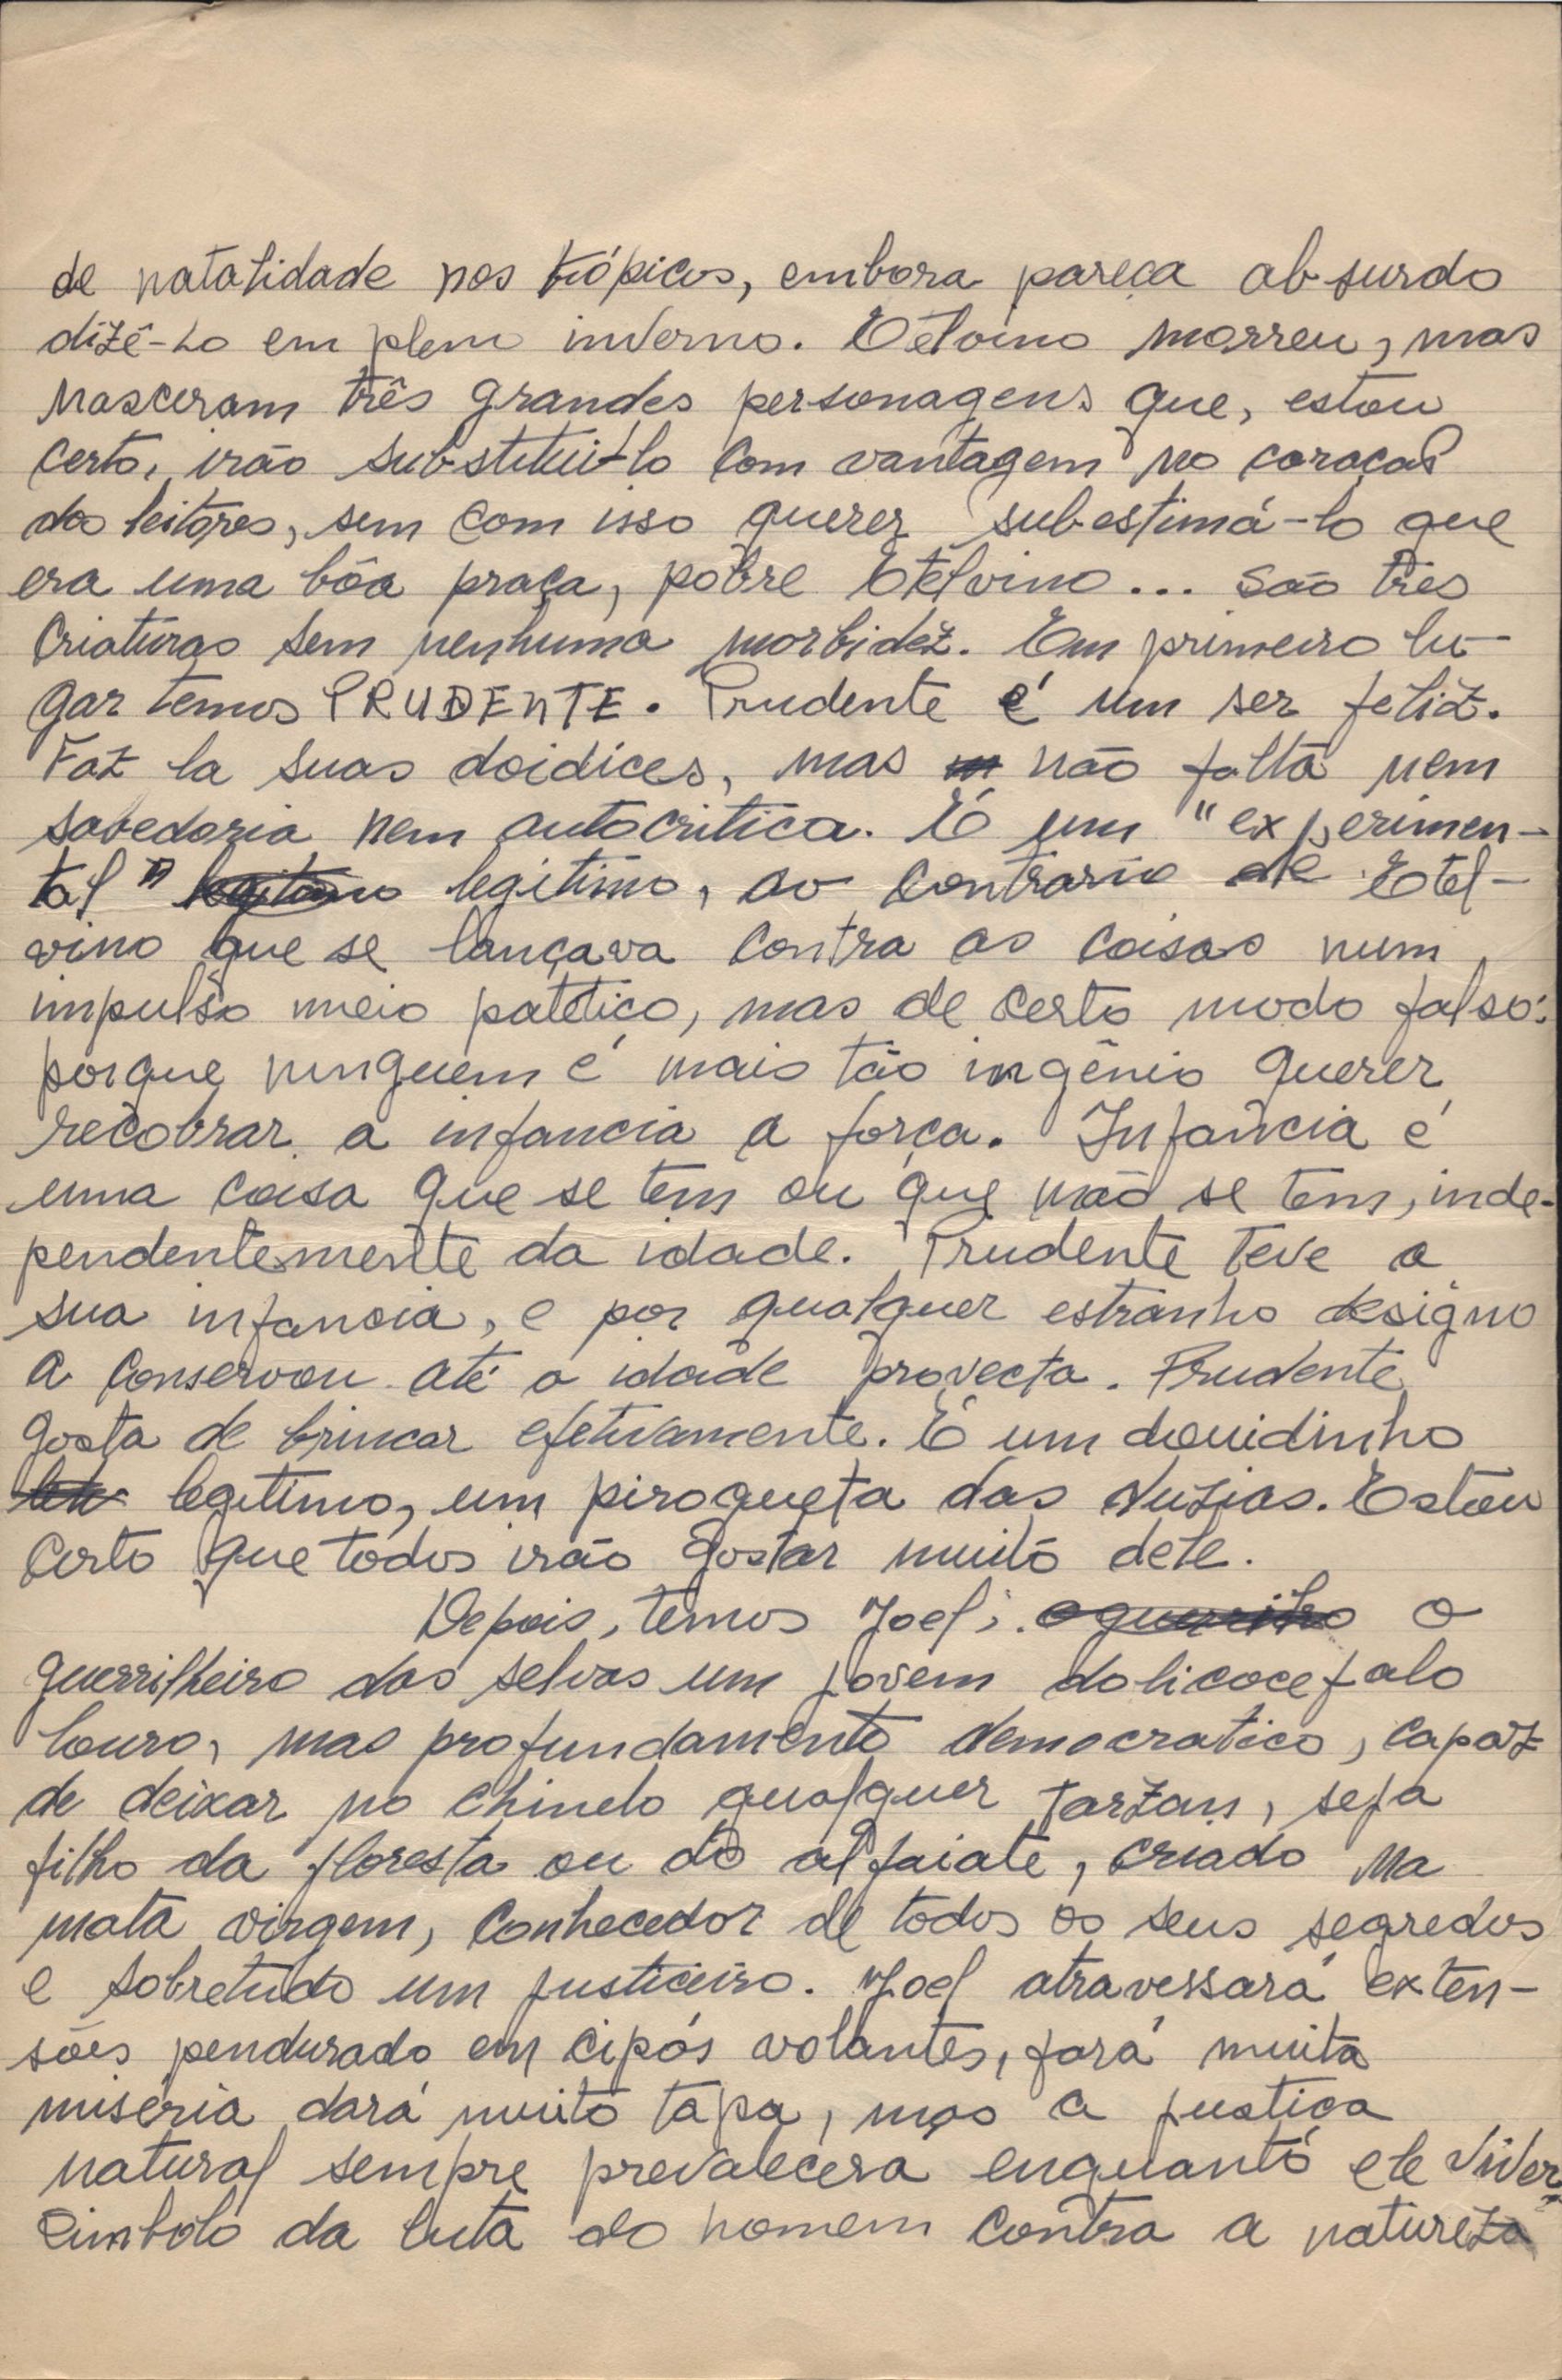 de natalidade nos trópicos, embora pareça absurdo
dizê-lo em pleno inverno. Etelvino morreu, mas
nasceram três grandes personagens que, estou
certo, irão substituí-lo com vantagem no coração
dos leitores, sem com isso querer subestimá-lo que
era uma bôa praça, pobre Etelvino... São três
criaturas sem nenhuma morbidez. Em primeiro lu-
gar temos PRUDENTE. Prudente é um ser feliz.
Faz la suas doidices, mas não falta nem
sabedoria nem autocritica. É um "experimen-
tal" legitimo, ao contrario de Etel-
vino que se lançava contra as coisas num
impulso meio patetico, mas de certo modo falso:
porque ninguem é mais tão ingênio querer
recobrar a infancia a força. Infancia é
uma coisa que se tem ou que não se tem, inde-
pendentemente da idade. Prudente teve a
sua infancia, e por qualquer estranho designo
a conservou até a idade provecta. Prudente
gosta de brincar efetivamente. É um douidinho
legitimo, um piroqueta das duzias. Estou
certo que todos irão gostar muito dele.
Depois, temos Joel; o
guerrilheiro das selvas um jovem dolicocefalo
louro, mas profundamente democratico, capaz
de deixar no chinelo qualquer tarzan, seja
filho da floresta ou do alfaiate, criado na
mata virgem, conhecedor de todos os seus segredos
e sobretudo um justiceiro. Joel atravessará exten-
sões pendurado em cipós volantes, fará muita
miseria dará muito tapa, mas a justiça
natural sempre prevalecera enquanto ele viver.
Simbolo da luta do homem contra a natureza